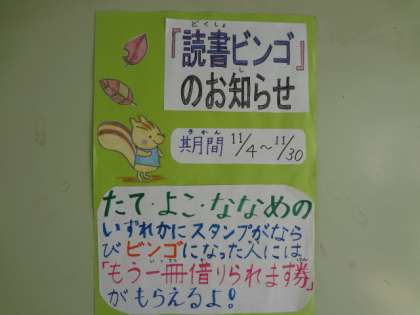 『読書ビンゴ』
のお知らせ
期間 11/4〜11/30
たて・よこ・ななめの
いずれかにスタンプがなら
びビンゴになった人には
「もう一冊借りられます券」
がもらえるよ!